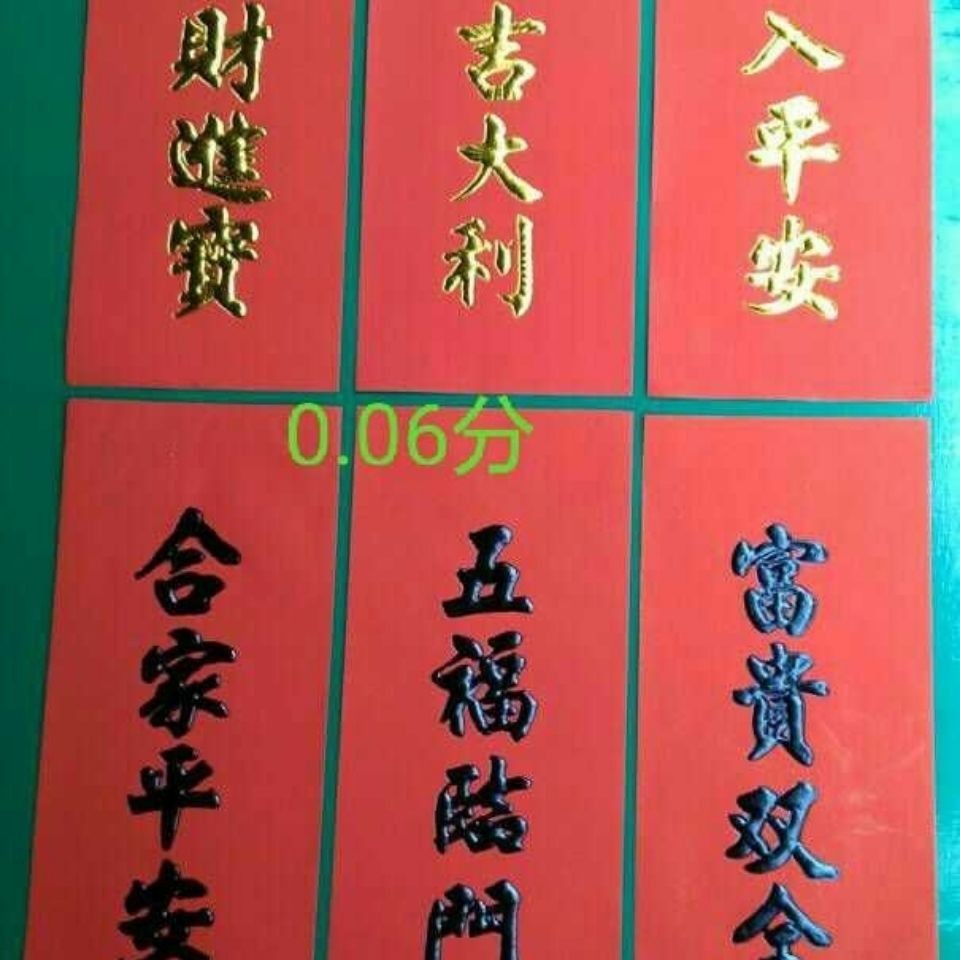 財進寶
吉大利
入平安
0.06分
合家平安
五福臨門
富貴双全